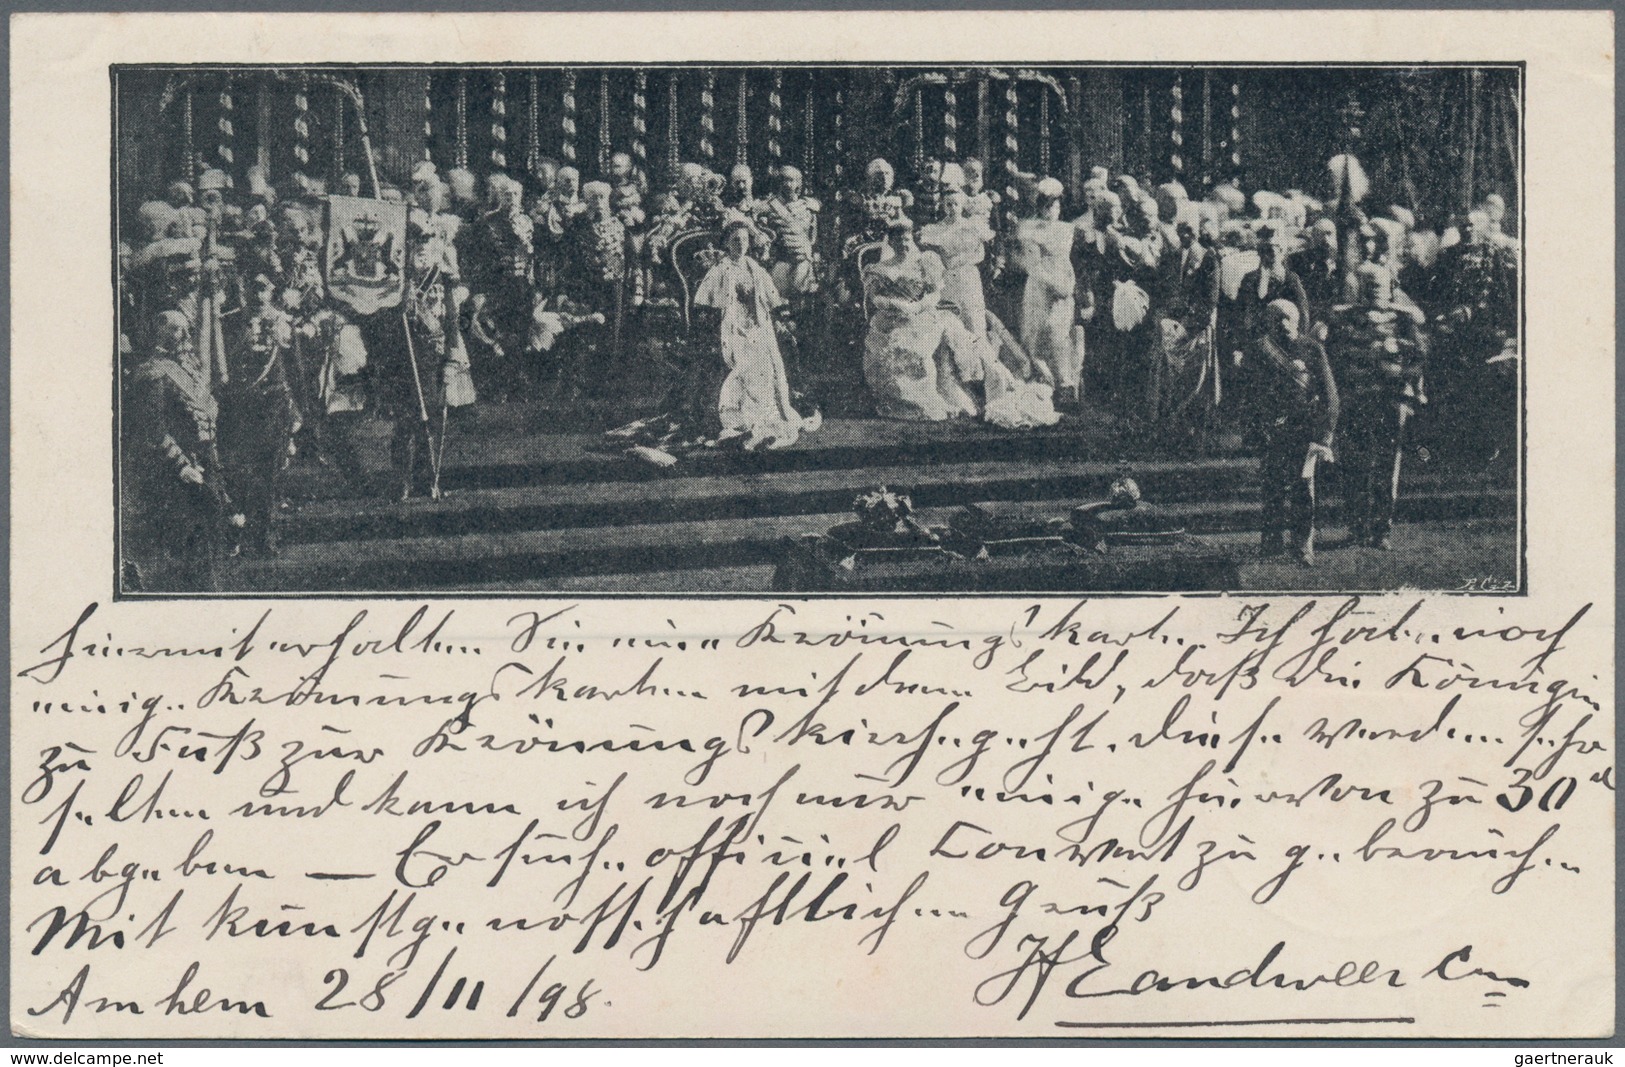 P. Cz
hiermit erhalten Sie eine Krönungskarte. Ich habe noch
einige Krönungskarten mit dem Bild, daß die Königin
zu Fuß zur Krönungskirche geht. diese werden sehr
selten und kann ich noch nur einige hiervon zu 30
abgeben — Ersuche officiel Convert zu gebrauchen
Mit kunstgenossschaftlichem Gruß
Arnhem 28/11/98. Landweer
www.delcampe.net
gaertnerauk